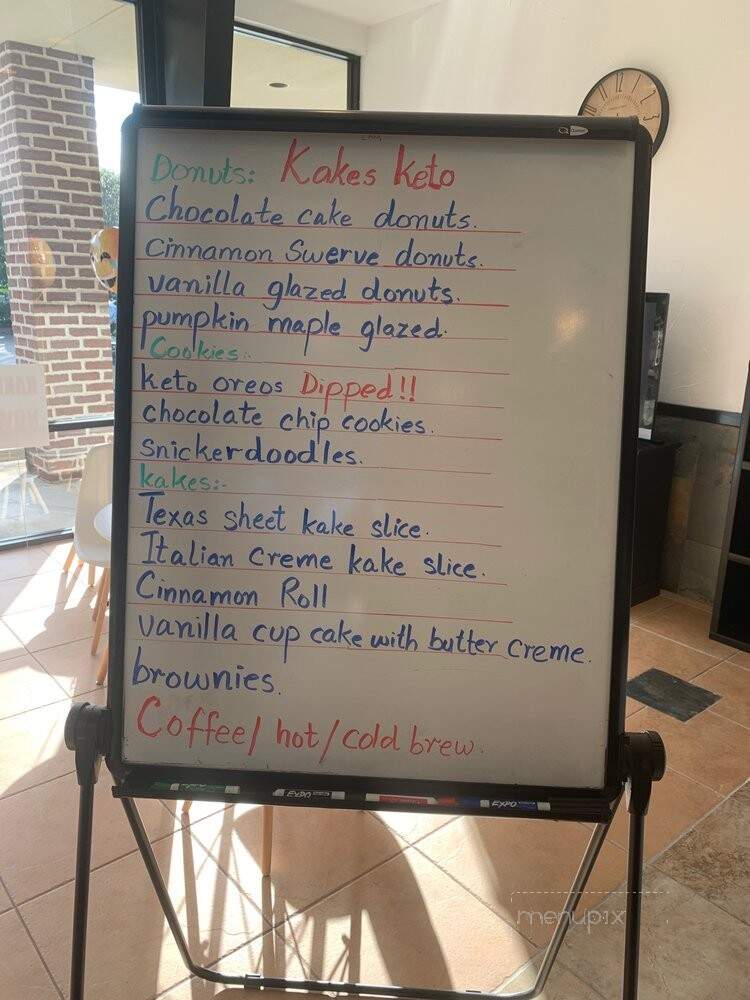 Donuts: Kakes keto
Chocolate cake donuts.
Cinnamon Swerve donuts.
vanilla glazed donuts.
pumpkin maple glazed.
Cookies:
keto oreos Dipped!!
chocolate chip cookies.
Snickerdoodles.
kakes:-
Texas sheet kake slice.
Italian Creme kake slice.
Cinnamon Roll
vanilla cup cake with butter creme.
brownies.
Coffee/ hot/cold brew.
EXPO EXPO
menupix